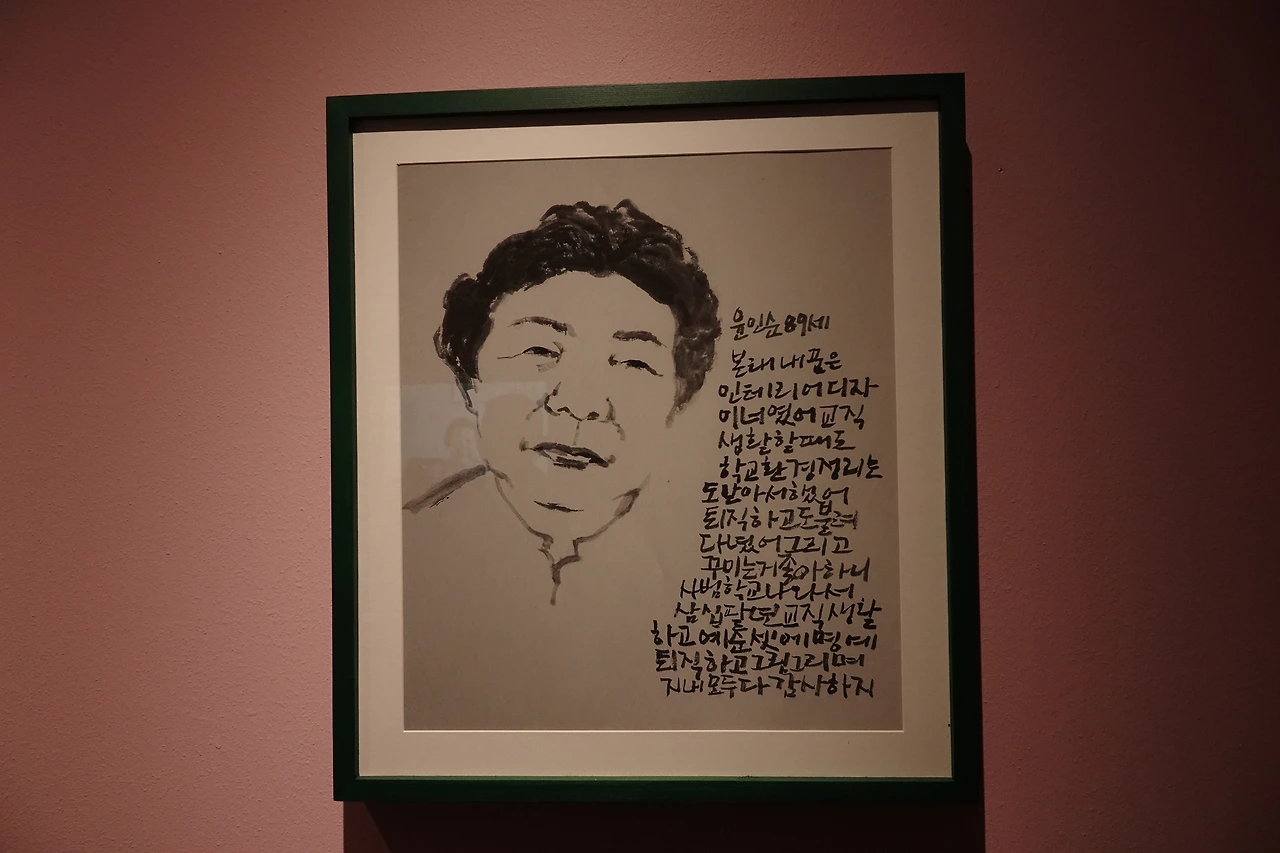 윤인순 89세
본래 내 꿈은
인테리어 디자
이너였어 교직
생활 할 때도
학교 환경정리는
도맡아서 했어
퇴직하고도 불려
다녔어 그리고
꾸미는 거 좋아하니
사범학교 나와서
삼십팔년 교직생활
하고 예순셋에 명예
퇴직하고 그림 그리며
지내 모두 다 감사하지